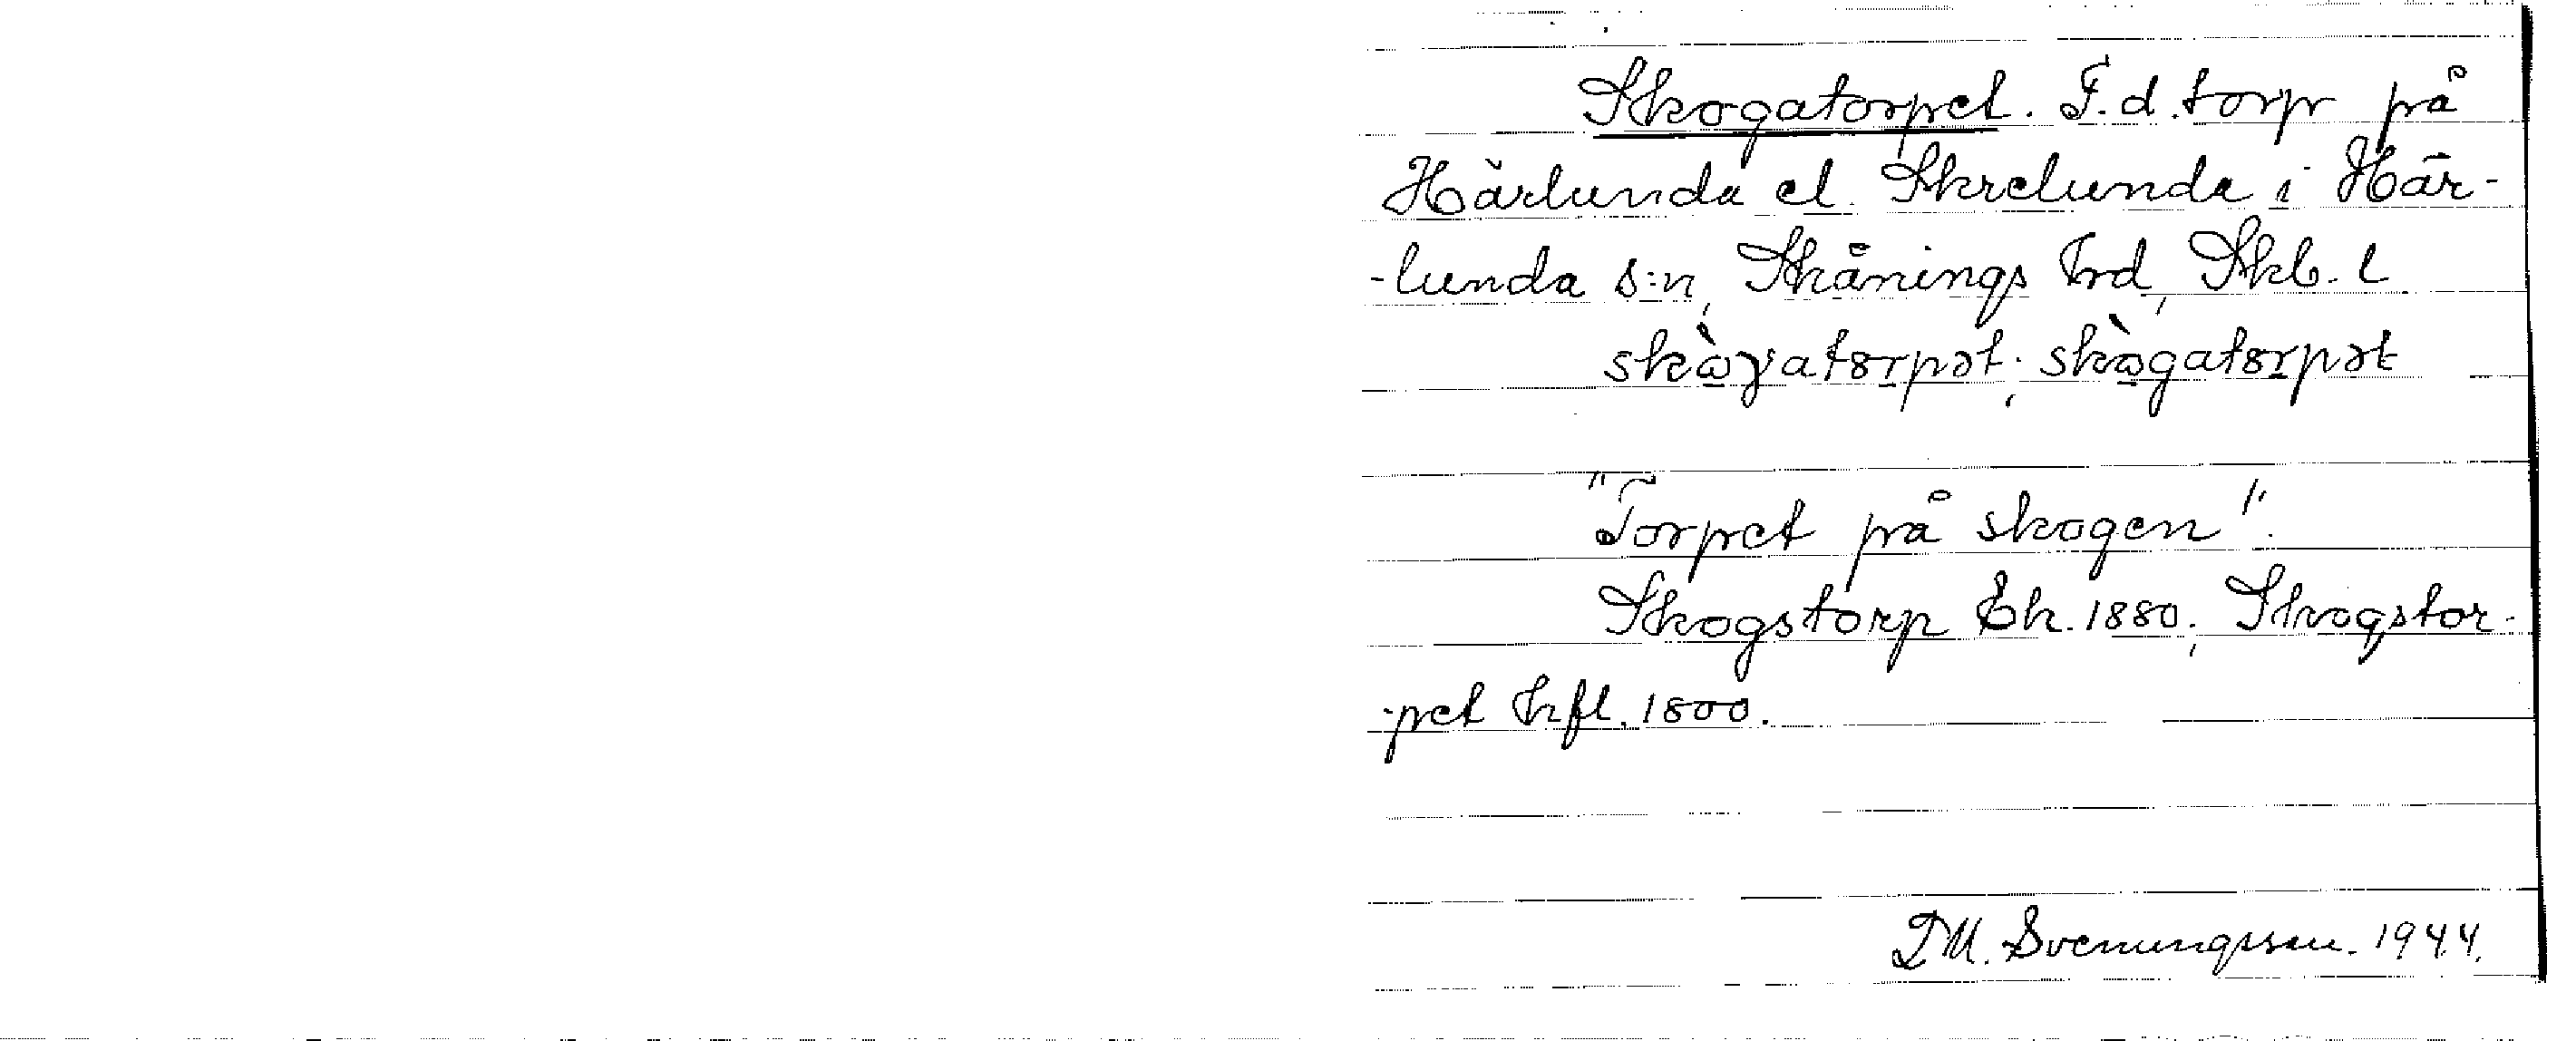 Skogatorpet. F.d. torp på
Härlunda el. Skrelunda i Här-
-lunda s:n, Skånings hrd, Skb. l
skòɣatɞrpət; skògatɞrpət
"Torpet på skogen".
Skogstorp Ek. 1880; Skogstor-
-pet hfl. 1800.
D.M. Svenungsson. 1944.